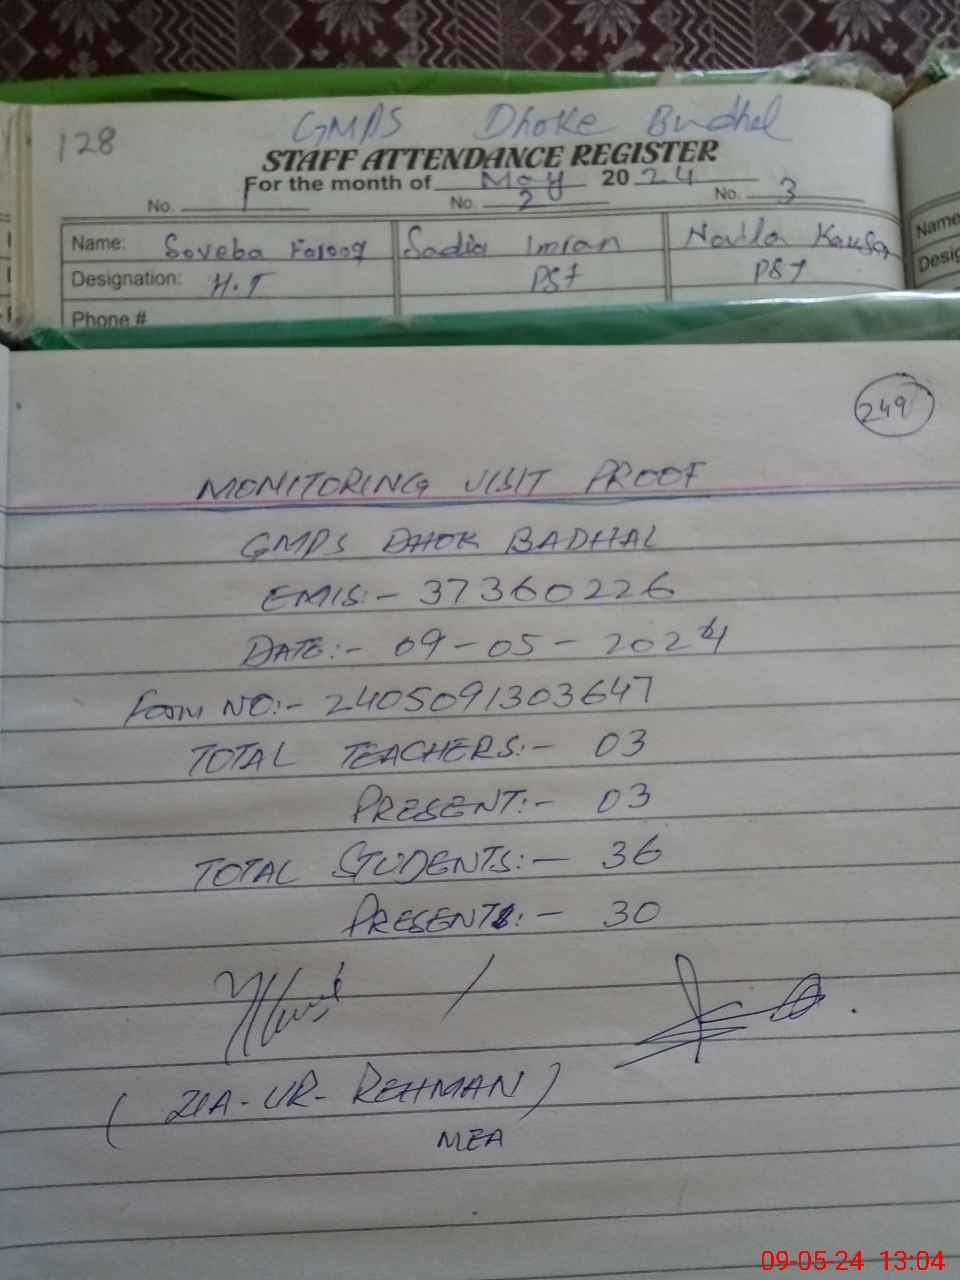 128
GMPS Dhoke Budhal
STAFF ATTENDANCE REGISTER
For the month of May 2024
No. 1 No. 2 No. 3
Name: Soveba Farooq Sadia Imran Navila Kausar
Designation: H.T PST PST
Phone #
Name
Desig
249
MONITORING VISIT PROOF
GMPS DHOK BADHAL
EMIS:- 37360226
DATE:- 09-05-2024
Form NO:- 2405091303647
TOTAL TEACHERS:- 03
PRESENT:- 03
TOTAL STUDENTS:- 36
PRESENT:- 30
(ZIA-UR-REHMAN)
MEA
09-05-24 13:04